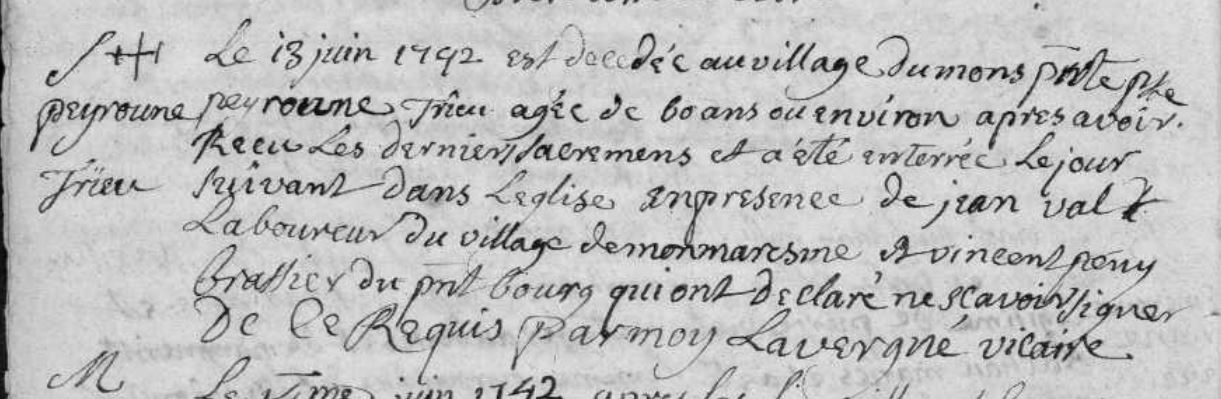 S ++ Le 13 juin 1742 est decedée au village du mons pnte psse
peyroune peyroune Trïeu agée de 60 ans ou environ apres avoir
Receu Les derniers sacremens et a été enterrée Le jour
Trïeu suivant dans Leglise en presence de jean val
Laboureur du village de monmaresme et vincent peny
brassier du pnt bourg qui ont declaré ne scavoir signer
De Ce Requis par moy Lavergne vicaire
M Le juin 1742 apres